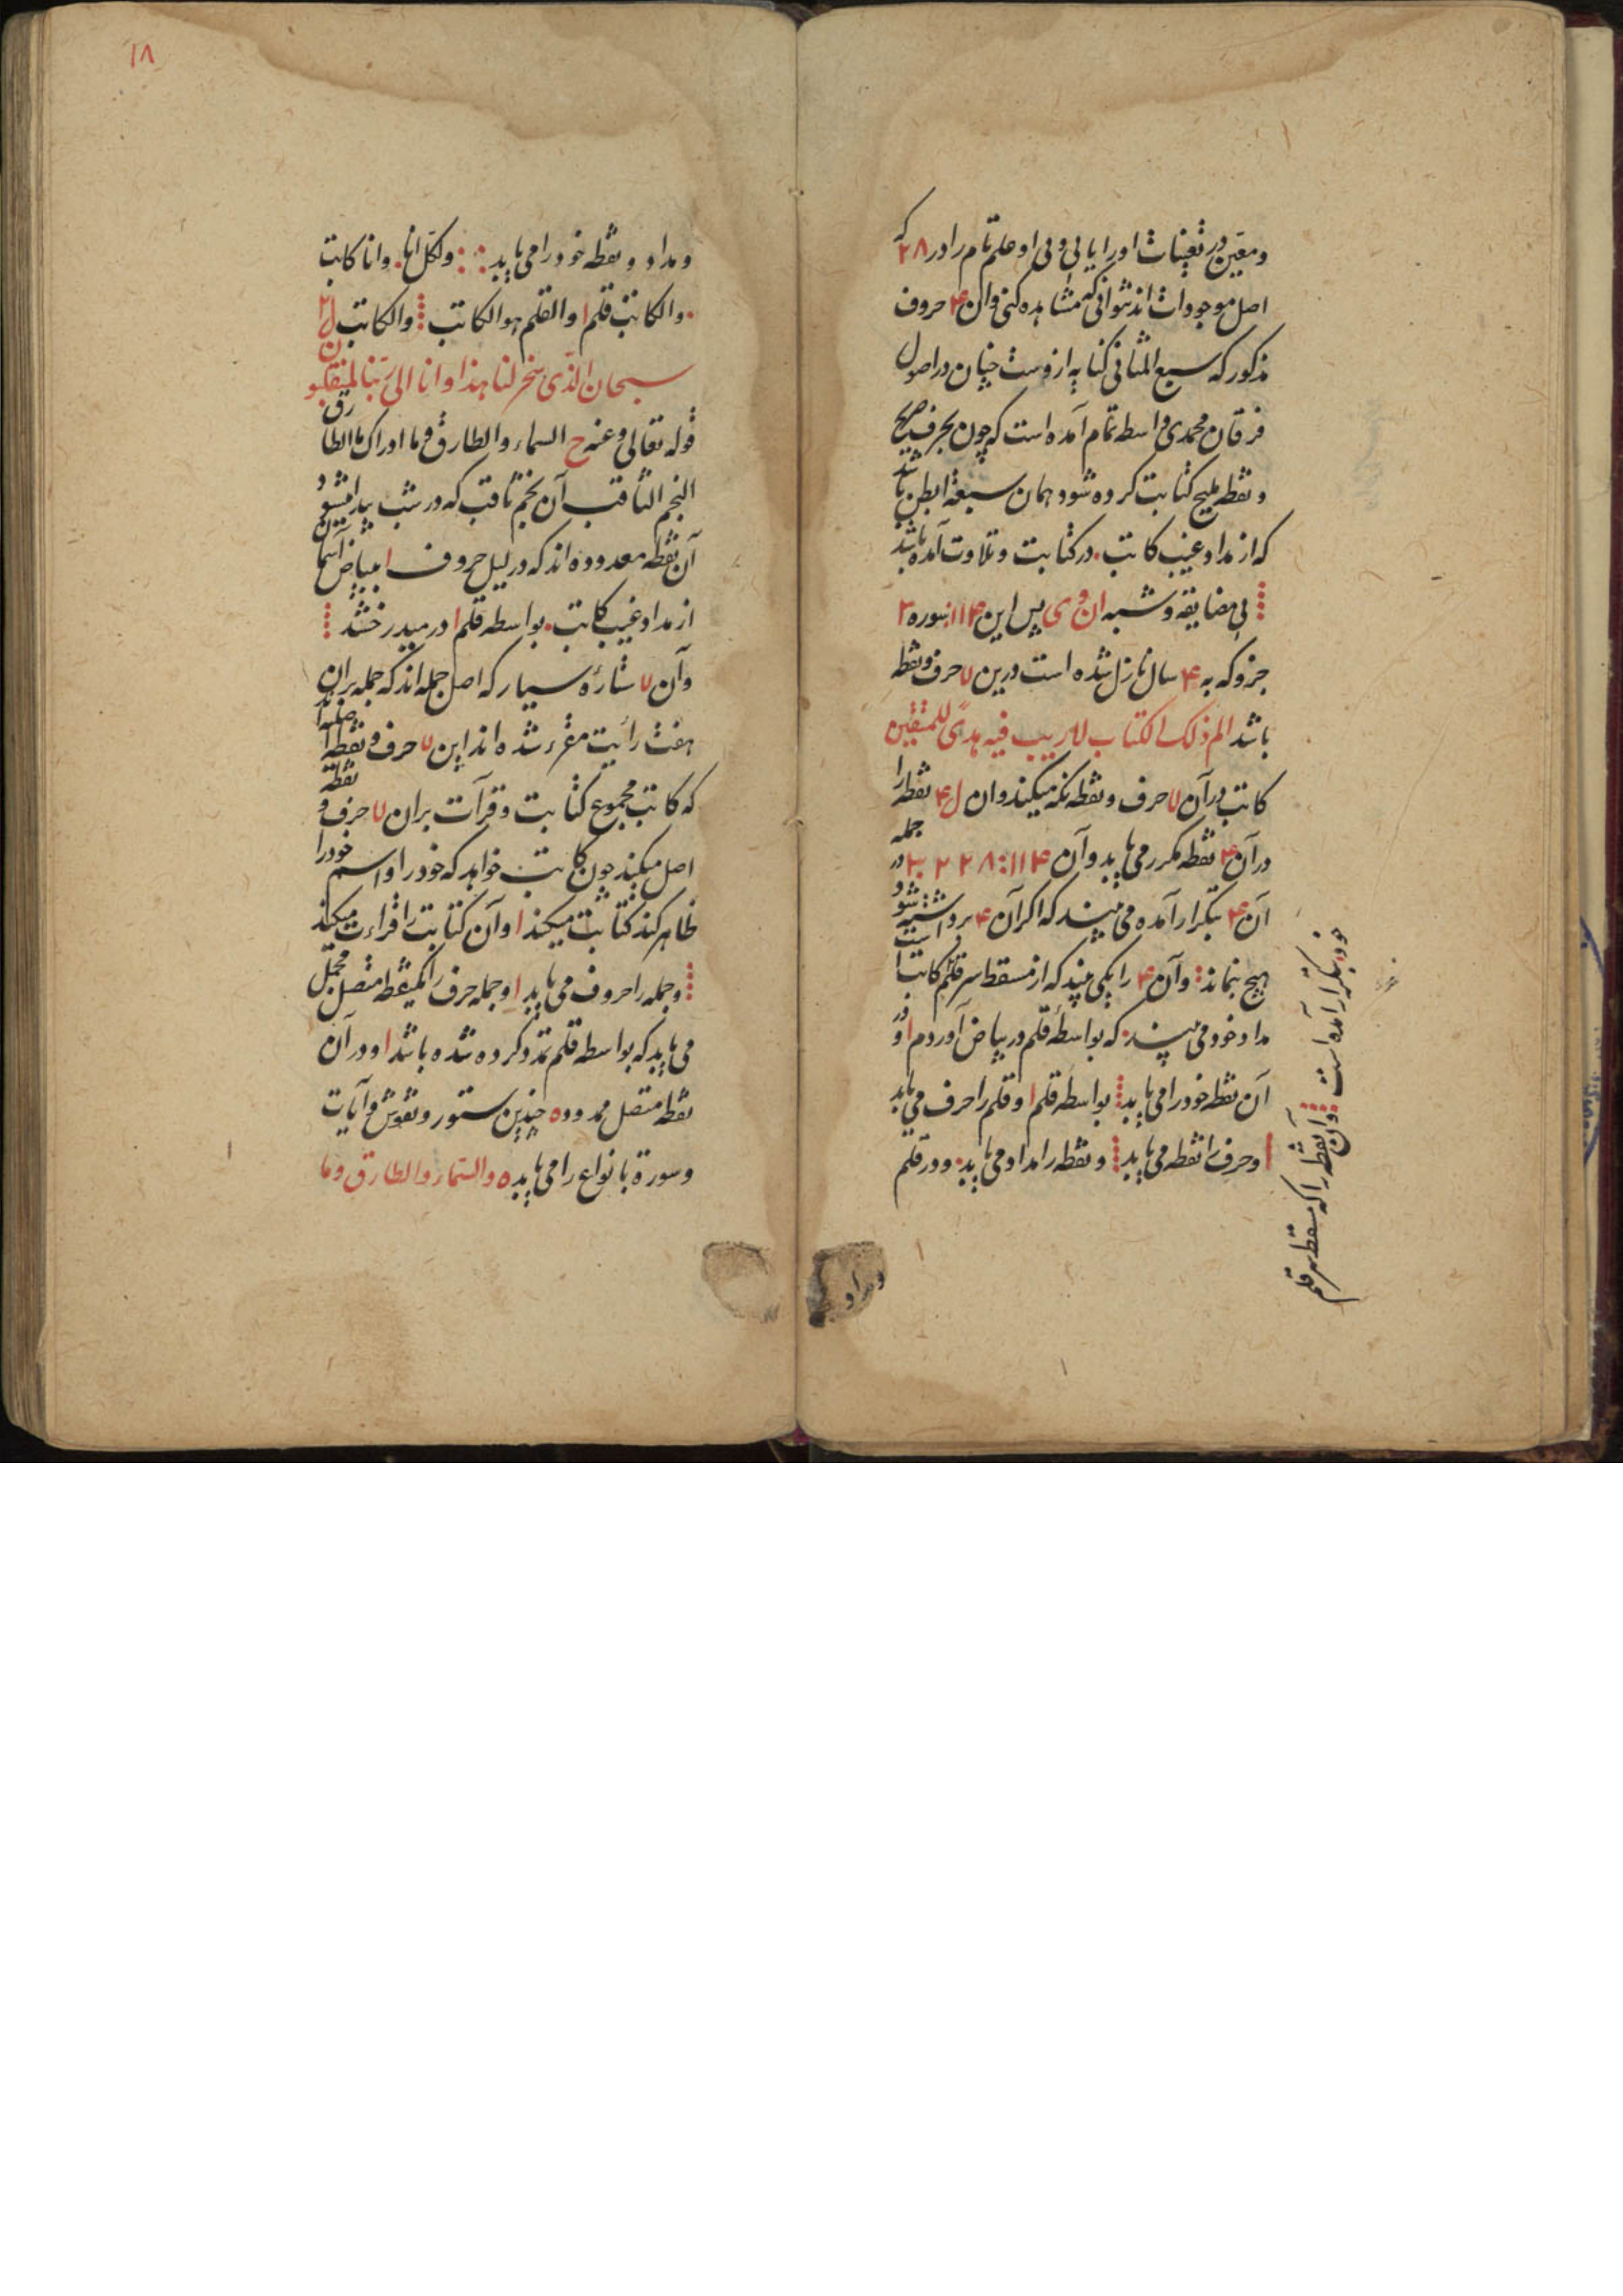 ومعین در تعینات او را یابی و بی او علم تمام را در ۲۸ که
اصل موجودات اند نتوانی که مشاهده کنی و آن ۴ حروف
مذکور که سبع المثانی کنایه ازوست چنان در اصول
فرقان محمدی واسطه تمام آمده است که چون بحرف صحیح
و نقطه ملیح کتابت کرده شود همان سبعة ابطن باشد
که از مداد غیب کاتب در کتابت و تلاوت آمده باشد
بی مضایقه و شبه ان وی پس این ۱۱۴ سوره ۳
جزو که به ۴ سال نازل شده است درین ۷ حرف و نقطه
باشد الم ذلک الکتاب لا ریب فیه هدی للمتقین
کاتب در آن ۷ حرف و نقطه نکه میکند و ان ل ۴ نقطه را
در آن ۴ نقطه مکرر می یابد و آن ۱۱۴ : ۲۸ ۲ ۳ در جمله
آن ۴ بتکرار آمده می بیند که اکر آن ۴ برداشته شود
هیچ نماند و آن ۴ را یکی بیند که از مسقط سر قلم کاتب است
مداد خود می بیند که بواسطهٔ قلم در بیاض آوردم او در
آن نقطه خود را می یابد بواسطه قلم ا و قلم را حرف می یابد
ا و حرف را نقطه می یابد و نقطه را مداد می یابد و در قلم
خود بتکرار آمده است و آن نقطه را که مسقط سر قلم
ومداد
۱۸
ومداد و نقطه خود را می یابد ولکل انا وانا کاتب
والکاتب قلم ا والقلم هو الکاتب والکاتب ل ۲
سبحان الذی سخر لنا هذا وانا الی ربنا لمنقلبون
قوله تعالی وعنه ح السماء والطارق وما ادراک ما الطارق
النجم الثاقب آن نجم ثاقب که در شب پیدا میشود
آن نقطه معدوده اند که در لیل حروف ا ببیاض آسمان
از مداد غیب کاتب بواسطه قلم ا در میدرخشند
وآن ۷ ستارهٔ سیار که اصل جمله اند که جمله بران
هفت رأیت مقرء شده اند این ۷ حرف و نقطه اصلند
که کاتب مجموع کتابت و قرآت بران ۷ حرف و نقطه
اصل میکند چون کاتب خواهد که خود را و اسم خود را
ظاهر کند کتابت میکند ا و آن کتابت را قراءت میکند
و جمله را حروف می یابد ا و جمله حرف را یک نقطه متصل مجمل
می یابد که بواسطه قلم تمدد کرده شده باشد ا و در آن
نقطه متصل ممدوده چندین ستور و نقوش و آیات
وسورة بانواع را می یابد والسماء والطارق وما